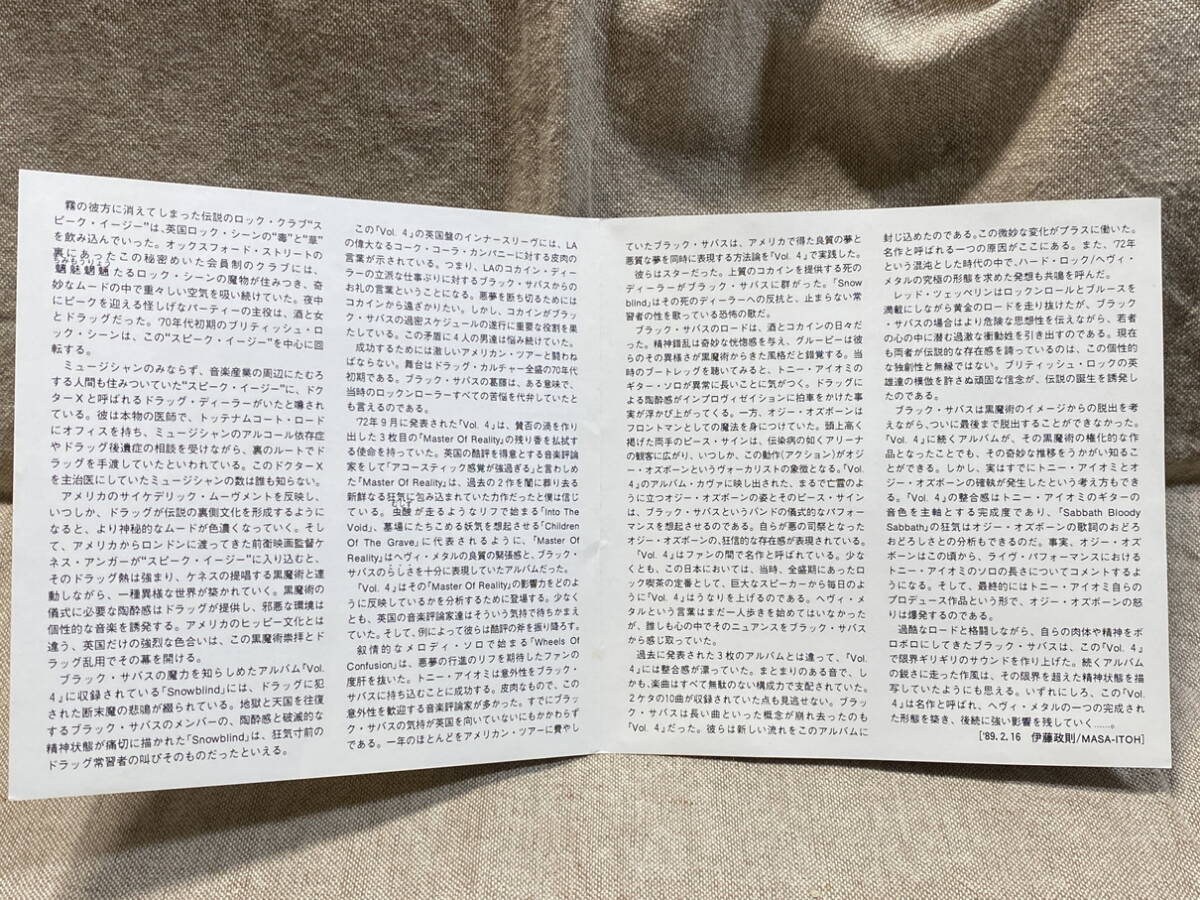 霧の彼方に消えてしまった伝説のロック・クラブ“ス
ピーク・イージー”は、英国ロック・シーンの“毒”と“草”
を飲み込んでいった。オックスフォード・ストリートの
裏にあったこの秘密めいた会員制のクラブには、
ちみもうりょう
魑魅魍魎たるロック・シーンの魔物が住みつき、奇
妙なムードの中で重々しい空気を吸い続けていた。夜中
にピークを迎える怪しげなパーティーの主役は、酒と女
とドラッグだった。'70年代初期のブリティッシュ・ロ
ック・シーンは、この“スピーク・イージー”を中心に回
転する。
ミュージシャンのみならず、音楽産業の周辺にたむろ
する人間も住みついていた“スピーク・イージー”に、ドク
ターXと呼ばれるドラッグ・ディーラーがいたと噂され
ている。彼は本物の医師で、トッテナムコート・ロード
にオフィスを持ち、ミュージシャンのアルコール依存症
やドラッグ後遺症の相談を受けながら、裏のルートでド
ラッグを手渡していたといわれている。このドクターX
を主治医にしていたミュージシャンの数は誰も知らない。
アメリカのサイケデリック・ムーヴメントを反映し、
いつしか、ドラッグが伝説の裏側文化を形成するように
なると、より神秘的なムードが色濃くなっていく。そし
て、アメリカからロンドンに渡ってきた前衛映画監督ケ
ネス・アンガーが“スピーク・イージー”に入り込むと、
そのドラッグ熱は強まり、ケネスの提唱する黒魔術と連
動しながら、一種異様な世界が築かれていく。黒魔術の
儀式に必要な陶酔感はドラッグが提供し、邪悪な環境は
個性的な音楽を誘発する。アメリカのヒッピー文化とは
違う、英国だけの強烈な色合いは、この黒魔術崇拝とド
ラッグ乱用でその幕を開ける。
ブラック・サバスの魔力を知らしめたアルバム「Vol.
4」に収録されている「Snowblind」には、ドラッグに犯
された断末魔の悲鳴が綴られている。地獄と天国を往復
するブラック・サバスのメンバーの、陶酔感と破滅的な
精神状態が痛切に描かれた「Snowblind」は、狂気寸前の
ドラッグ常習者の叫びそのものだったといえる。
この「Vol. 4」の英国盤のインナースリーヴには、LA
の偉大なるコーク・コーラ・カンパニーに対する皮肉の
言葉が示されている。つまり、LAのコカイン・ディー
ラーの立派な仕事ぶりに対するブラック・サバスからの
お礼の言葉ということになる。悪夢を断ち切るためには
コカインから遠ざかりたい。しかし、コカインがブラッ
ク・サバスの過密スケジュールの遂行に重要な役割を果
たしている。この矛盾に4人の男達は悩み続けていた。
成功するためには激しいアメリカン・ツアーと闘わね
ばならない。舞台はドラッグ・カルチャー全盛の70年代
初期である。ブラック・サバスの葛藤は、ある意味で、
当時のロックンローラーすべての苦悩を代弁していたと
も言えるのである。
'72年9月に発表された「Vol. 4」は、賛否の渦を作り
出した3枚目の「Master Of Reality」の残り香を払拭す
る使命を持っていた。英国の酷評を得意とする音楽評論
家をして「アコースティック感覚が強過ぎる」と言わしめ
た「Master Of Reality」は、過去の2作を闇に葬り去る
新鮮なる狂気に包み込まれていた力作だったと僕は信じ
ている。虫酸が走るようなリフで始まる「Into The
Void」、墓場にたちこめる妖気を想起させる「Children
Of The Grave」に代表されるように、「Master Of
Reality」はヘヴィ・メタルの良質の緊張感と、ブラック・
サバスのらしさを十分に表現していたアルバムだった。
「Vol. 4」はその「Master Of Reality」の影響力をどのよ
うに反映しているかを分析するために登場する。少なく
とも、英国の音楽評論家達はそういう気持で待ちかまえ
ていた。そして、例によって彼らは酷評の斧を振り降ろす。
叙情的なメロディ・ソロで始まる「Wheels Of
Confusion」は、悪夢の行進のリフを期待したファンの
度肝を抜いた。トニー・アイオミは意外性をブラック・
サバスに持ち込むことに成功する。皮肉なもので、この
意外性を歓迎する音楽評論家が多かった。すでにブラッ
ク・サバスの気持が英国を向いていないにもかかわらず
である。一年のほとんどをアメリカン・ツアーに費やし
ていたブラック・サバスは、アメリカで得た良質の夢と
悪質な夢を同時に表現する方法論を「Vol. 4」で実践した。
彼らはスターだった。上質のコカインを提供する死の
ディーラーがブラック・サバスに群がった。「Snow
blind」はその死のディーラーへの反抗と、止まらない常
習者の性を歌っている恐怖の歌だ。
ブラック・サバスのロードは、酒とコカインの日々だ
った。精神錯乱は奇妙な恍惚感を与え、グルーピーは彼
らのその異様さが黒魔術からきた風格だと錯覚する。当
時のブートレッグを聴いてみると、トニー・アイオミの
ギター・ソロが異常に長いことに気がつく。ドラッグに
よる陶酔感がインプロヴィゼイションに拍車をかけた事
実が浮かび上がってくる。一方、オジー・オズボーンは
フロントマンとしての魔法を身につけていた。頭上高く
掲げた両手のピース・サインは、伝染病の如くアリーナ
の観客に広がり、いつしか、この動作(アクション)がオジ
ー・オズボーンというヴォーカリストの象徴となる。「Vol.
4」のアルバム・カヴァに映し出された、まるで亡霊のよ
うに立つオジー・オズボーンの姿とそのピース・サイン
は、ブラック・サバスというバンドの儀式的なパフォー
マンスを想起させるのである。自らが悪の司祭となった
オジー・オズボーンの、狂信的な存在感が表現されている。
「Vol. 4」はファンの間で名作と呼ばれている。少な
くとも、この日本においては、当時、全盛期にあったロ
ック喫茶の定番として、巨大なスピーカーから毎日のよ
うに「Vol. 4」はうなりを上げるのである。ヘヴィ・メ
タルという言葉はまだ一人歩きを始めてはいなかった
が、誰しも心の中でそのニュアンスをブラック・サバス
から感じ取っていた。
過去に発表された3枚のアルバムとは違って、「Vol.
4」には整合感が漂っていた。まとまりのある音で、し
かも、楽曲はすべて無駄のない構成力で支配されていた。
2ケタの10曲が収録されていた点も見逃せない。ブラッ
ク・サバスは長い曲といった概念が崩れ去ったのも
「Vol. 4」だった。彼らは新しい流れをこのアルバムに
封じ込めたのである。この微妙な変化がプラスに働いた。
名作と呼ばれる一つの原因がここにある。また、'72年
という混沌とした時代の中で、ハード・ロック/ヘヴィ・
メタルの究極の形態を求めた発想も共鳴を呼んだ。
レッド・ツェッペリンはロックンロールとブルースを
満載にしながら黄金のロードを走り抜けたが、ブラック
・サバスの場合はより危険な思想性を伝えながら、若者
の心の中に潜む過激な衝動性を引き出すのである。現在
も両者が伝説的な存在感を誇っているのは、この個性的
な独創性と無縁ではない。ブリティッシュ・ロックの英
雄達の模倣を許さぬ頑固な信念が、伝説の誕生を誘発し
たのである。
ブラック・サバスは黒魔術のイメージからの脱出を考
えながら、ついに最後まで脱出することができなかった。
「Vol. 4」に続くアルバムが、その黒魔術の権化的な作
品となったことでも、その奇妙な推移をうかがい知るこ
とができる。しかし、実はすでにトニー・アイオミとオ
ジー・オズボーンの確執が発生したという考え方もでき
る。「Vol. 4」の整合感はトニー・アイオミのギターの
音色を主軸とする完成度であり、「Sabbath Bloody
Sabbath」の狂気はオジー・オズボーンの歌詞のおどろ
おどろしさとの分析もできるのだ。事実、オジー・オズ
ボーンはこの頃から、ライヴ・パフォーマンスにおける
トニー・アイオミのソロの長さについてコメントするよ
うになる。そして、最終的にはトニー・アイオミ自らの
プロデュース作品という形で、オジー・オズボーンの怒
りは爆発するのである。
過酷なロードと格闘しながら、自らの肉体や精神をボ
ロボロにしてきたブラック・サバスは、この「Vol. 4」
で限界ギリギリのサウンドを作り上げた。続くアルバム
の鋭さに走った作風は、その限界を超えた精神状態を描
写していたようにも思える。いずれにしろ、この「Vol.
4」は名作と呼ばれ、ヘヴィ・メタルの一つの完成され
た形態を築き、後続に強い影響を残していく……。
['89. 2. 16 伊藤政則/MASA-ITOH]